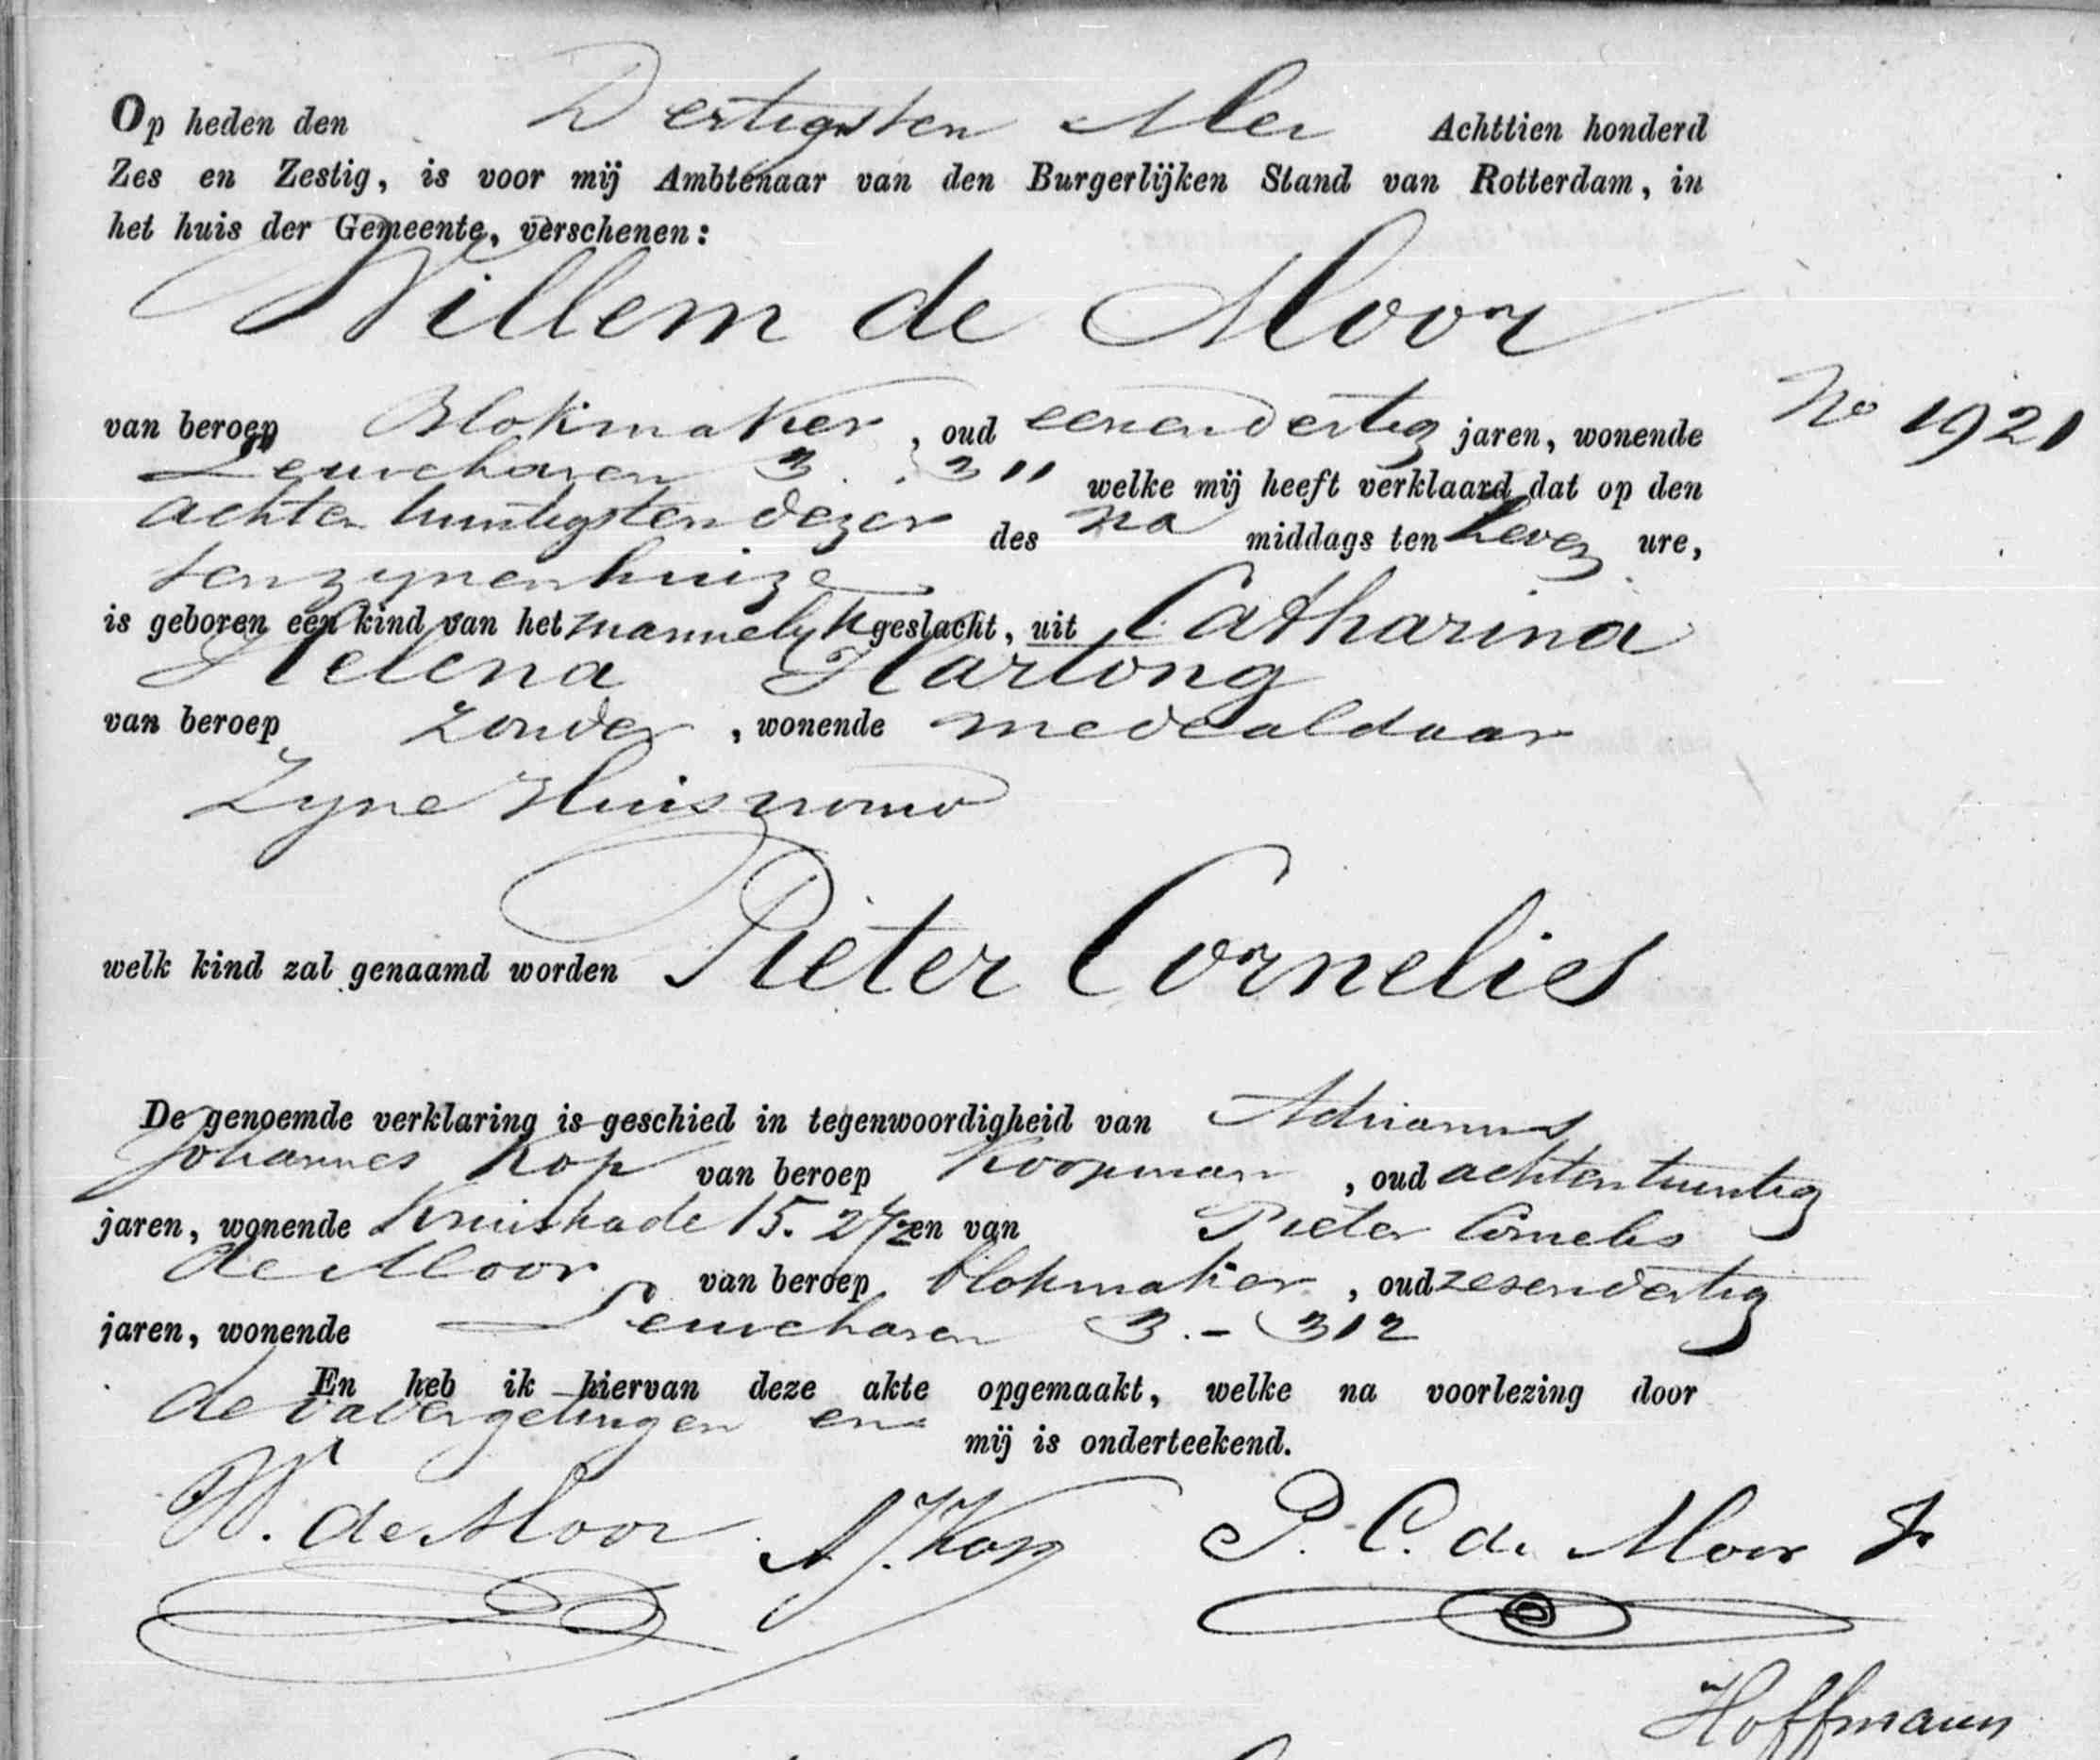 Op heden den Dertigsten Mei Achttien honderd
Zes en Zestig, is voor mij Ambtenaar van den Burgerlijken Stand van Rotterdam, in
het huis der Gemeente, verschenen:
Willem de Moor
van beroep Blokmaker, oud eenendertig jaren, wonende
Leuvehaven 3. 311 welke mij heeft verklaard dat op den
achtentwintigsten dezer des na middags ten zeven ure,
ten zynen huize
is geboren een kind van het mannelyk geslacht, uit Catharina
Helena Hartong
van beroep zonder, wonende mede aldaar
Zyne Huisvrouw
welk kind zal genaamd worden Pieter Cornelies
No 1921
De genoemde verklaring is geschied in tegenwoordigheid van Adrianus
Johannes Kop van beroep Koopman, oud achtentwintig
jaren, wonende Kruiskade 15. en van Pieter Cornelis
de Moor van beroep blokmaker, oud zesendertig
jaren, wonende Leuvehaven 3. - 312
En heb ik hiervan deze akte opgemaakt, welke na voorlezing door
de vader getuigen en mij is onderteekend.
W. de Moor A. J. Kop P. C. de Moor Jr
Hoffmann